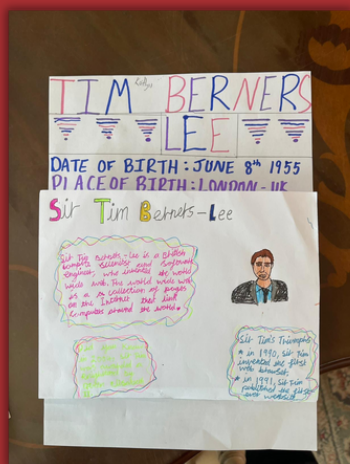 TIM BERNERS
LEE
DATE OF BIRTH : JUNE 8th 1955
PLACE OF BIRTH : LONDON - UK
Sir Tim Berners-Lee
Sir Tim Berners-Lee is a British
computer scientist and software
engineer, who invented the world
wide web. The world wide web
is a collection of pages
on the Internet that link
computers around the world.
Sir Tim's Triumphs
in 1990, Sir Tim
invented the first
web browser.
in 1991, Sir Tim
published the first
ever website.